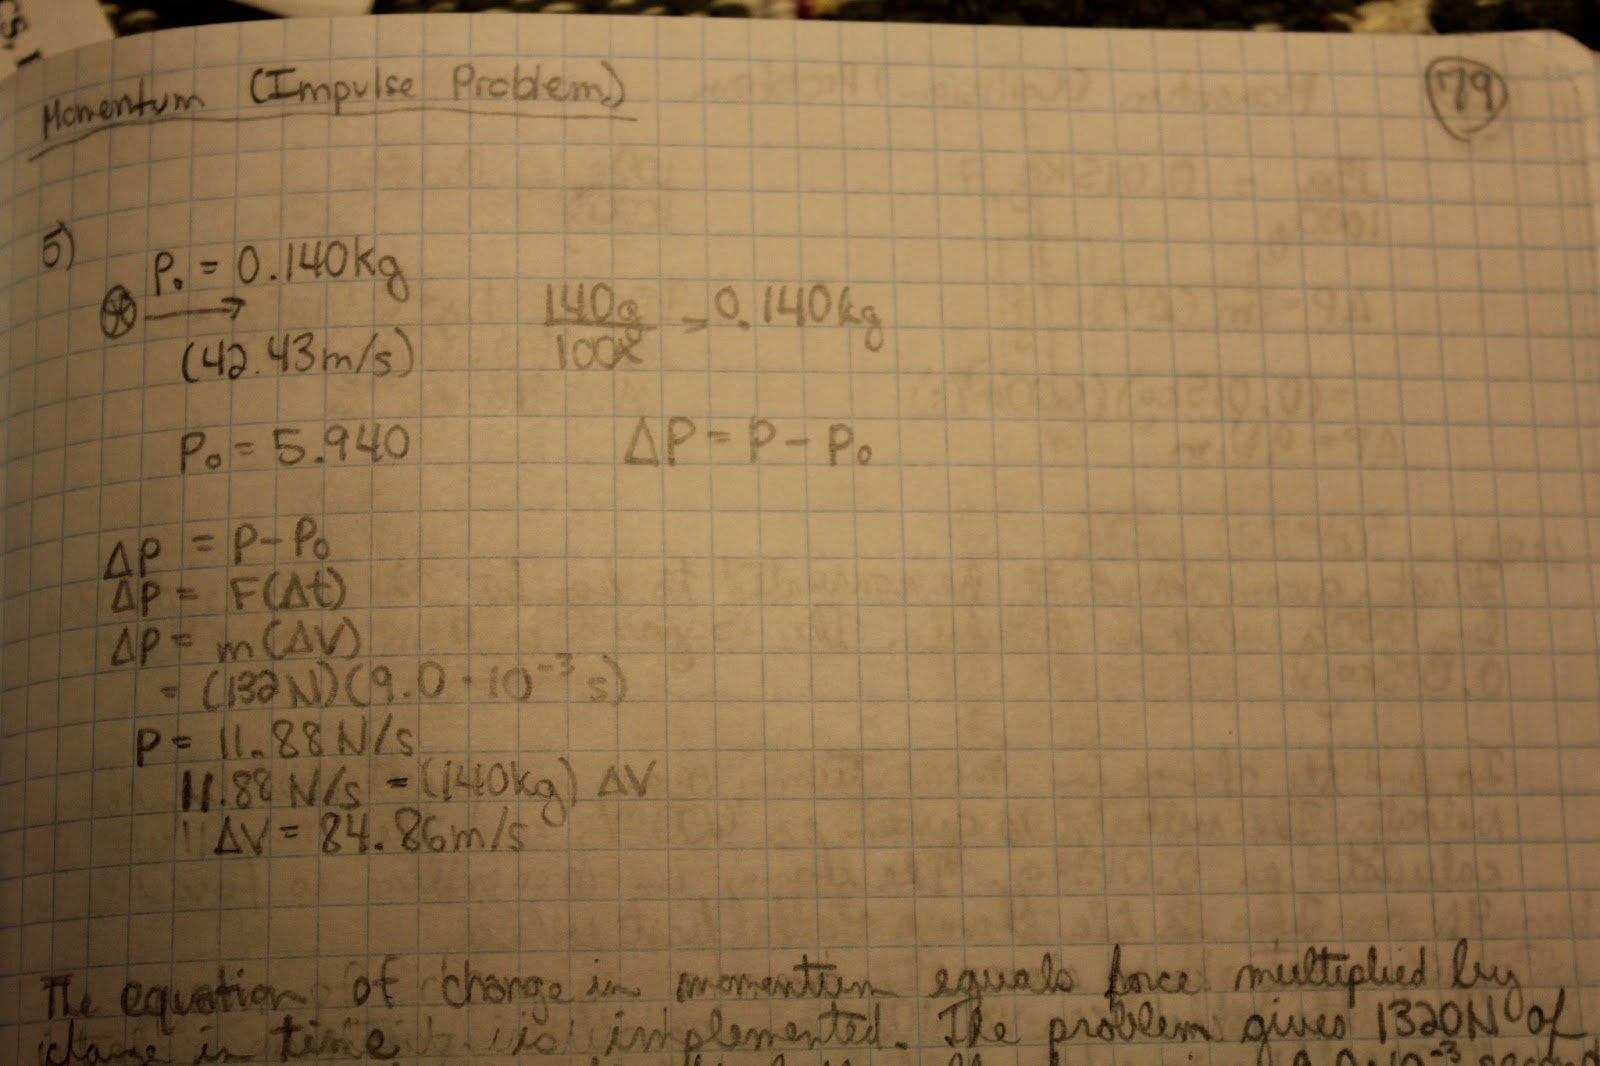 CS, I
Momentum (Impulse Problem)
79
5)
P₀ = 0.140kg
(42.43m/s)
140g
100g
= 0.140kg
P₀ = 5.940
ΔP = P - P₀
ΔP = P - P₀
ΔP = F(Δt)
ΔP = m(ΔV)
= (132N)(9.0·10⁻³s)
P = 11.88 N/s
11.88 N/s = (140kg) ΔV
ΔV = 84.86m/s
The equation of change in momentum equals force multiplied by
change in time is implemented. The problem gives 1320N of